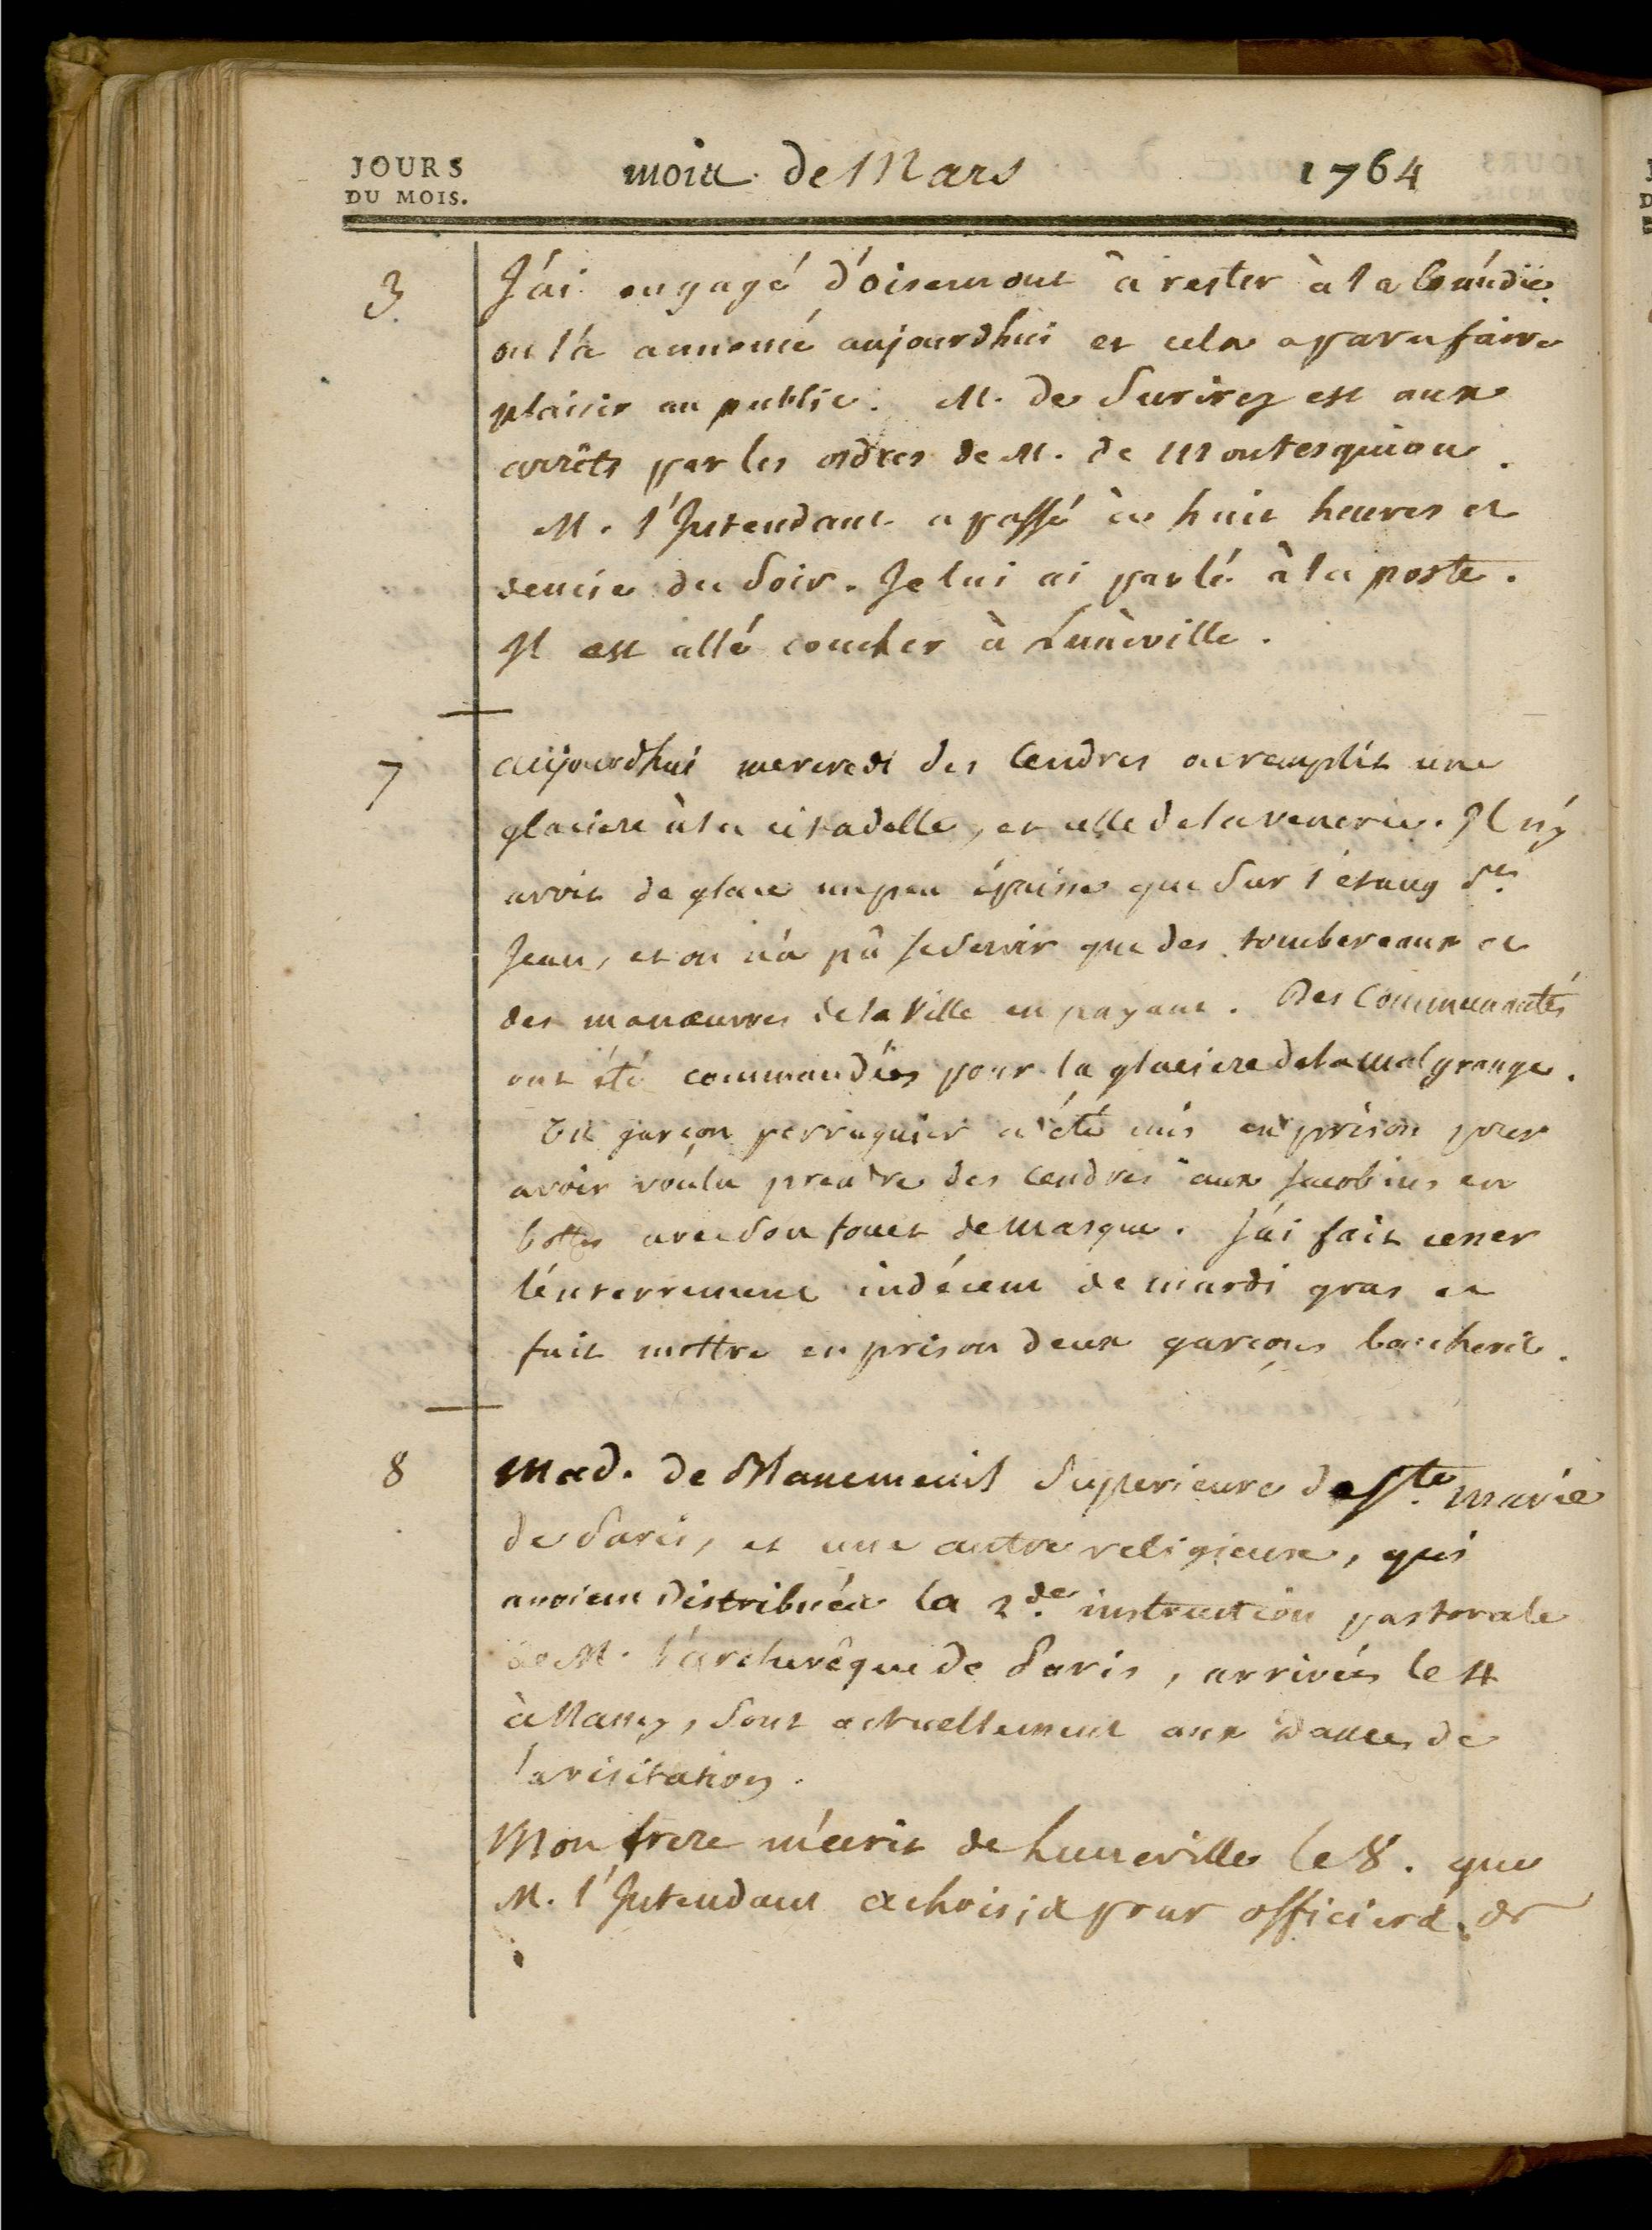 JOURS
DU MOIS.
mois de Mars 1764
3
J'ai engagé d'oisemont à rester à la Comédie.
on l'a annoncé aujourdhui et cela a paru faire
plaisir au public. M. de Surirey est aux
arrêts par les ordres de M. de Montesquiou.
M. l'Intendant a passé à huit heures et
demie du Soir. Je lui ai parlé à la poste.
Il est allé coucher à Lunéville.
7
aujourdhui mercredi des Cendres on remplit une
glaciere à la citadelle, et celle de la venerie. Il n'y
avoit de glace un peu épaisse que Sur l'étang St.
Jean, et on n'a pû se Servir que des tombereaux et
des manœuvres de la Ville en payant. Des Communautés
ont été commandées pour la glaciere de la Malgrange.
Un garçon perruquier a été mis en prison pour
avoir voulu prendre des cendres aux Jacobins en
bottes avec Son fouet de Masque. J'ai fait cesser
l'enterrement indécent de mardi gras et
fait mettre en prison deux garçons bouchers.
8
Mad. de Superieure de Ste. Marie
de Paris, et une autre religieuse, qui
avoient distribuées la 2de. instruction pastorale
de M. l'archevêque de Paris, arrivées le 4
à Nancy, Sont actuellement aux Dames de
la visitation.
Mon frere m'écrit de Luneville le 8. que
M. l'Intendant a choisis pour officiers de